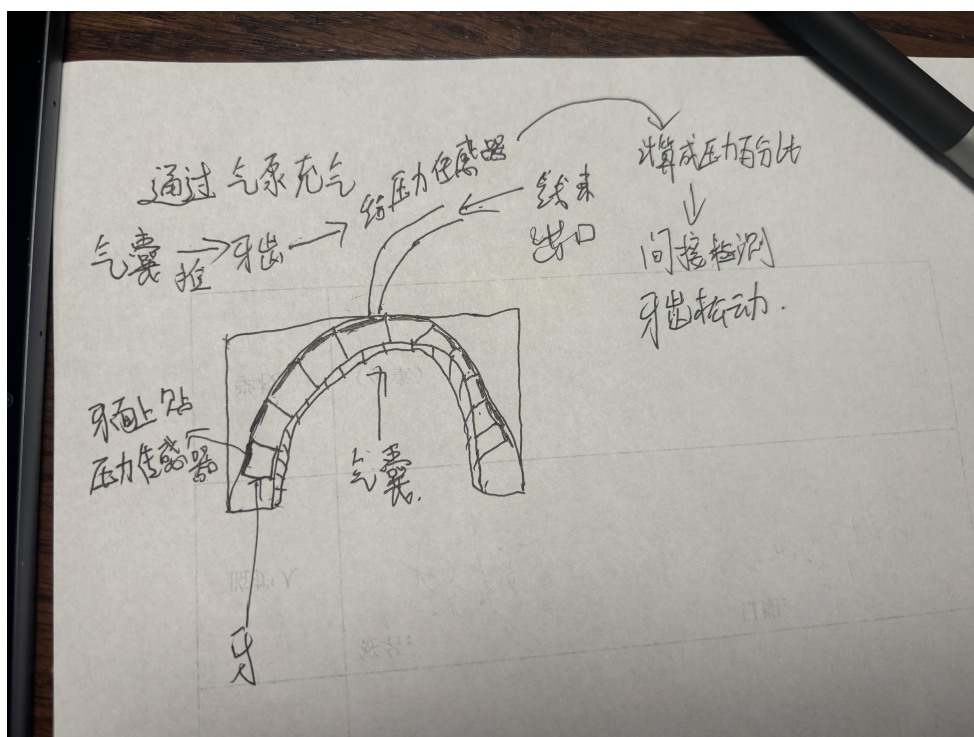 通过气泵充气
气囊
推
牙齿
给压力传感器
线束
出口
计算成压力百分比
间接检测
牙齿松动.
牙面上贴
压力传感器
气囊.
牙